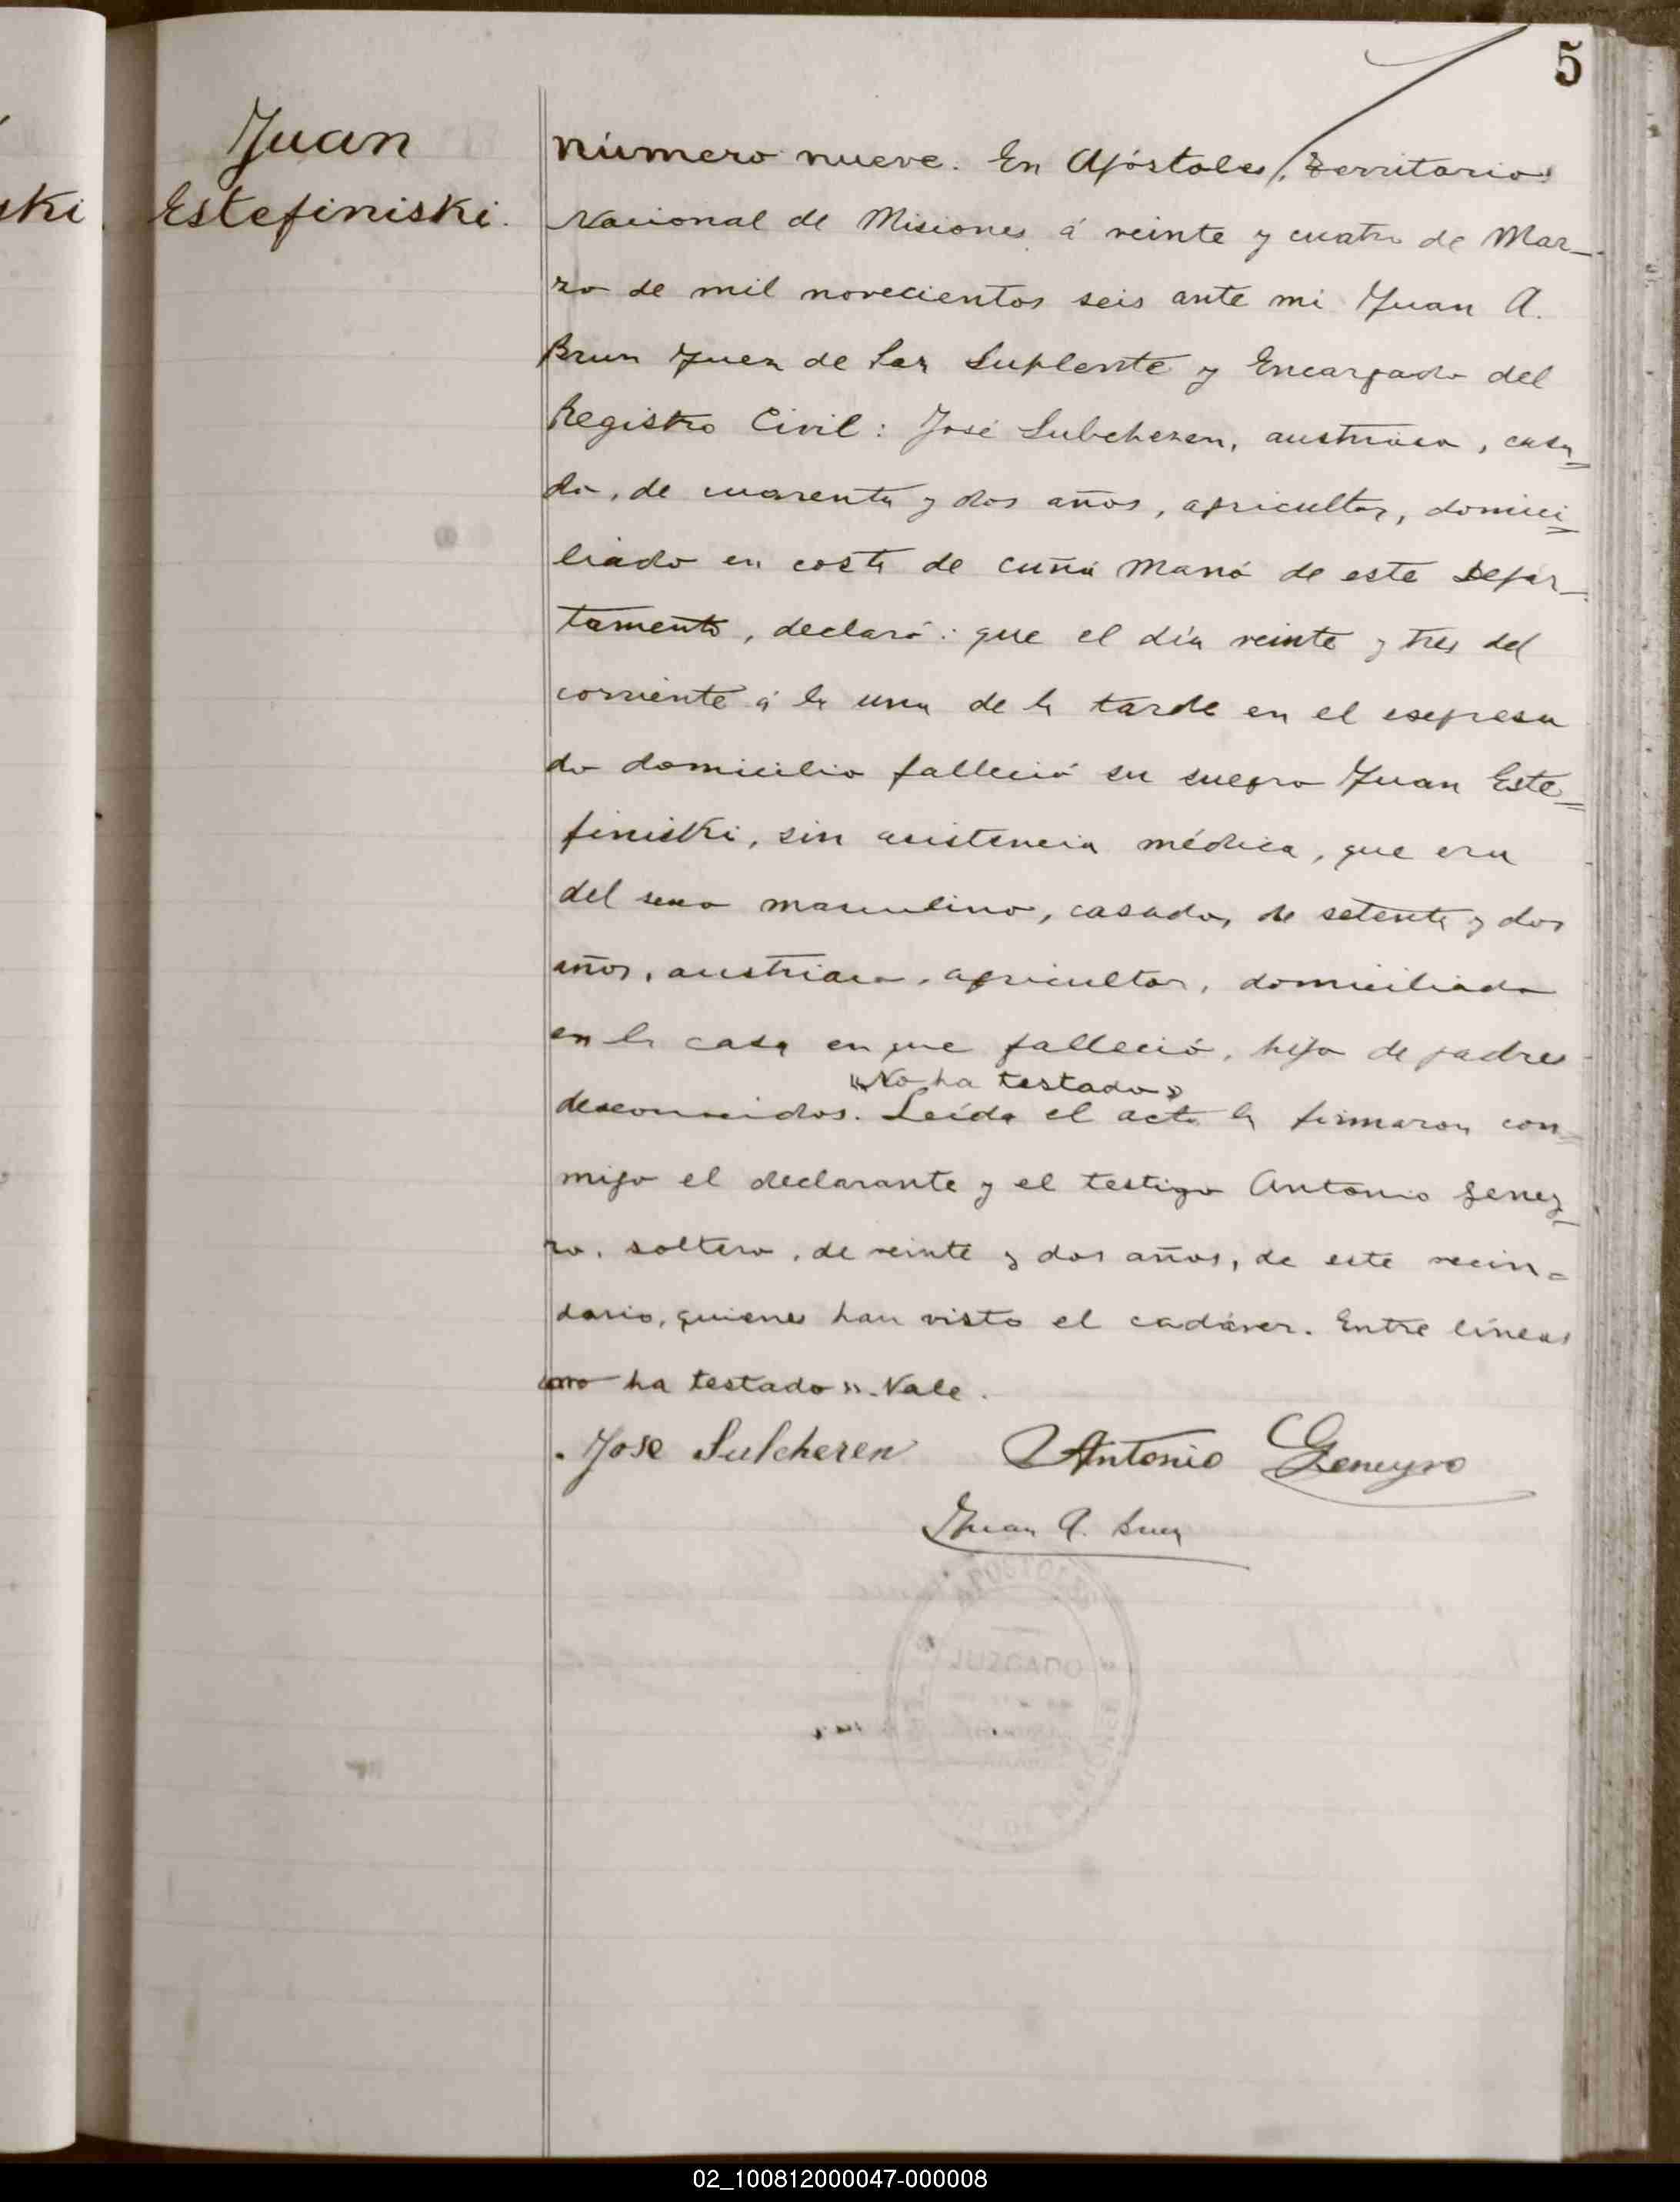 5
ski.
Juan
Estefiniski.
Número nueve. En Apóstoles, Territorio
Nacional de Misiones á veinte y cuatro de Mar-
zo de mil novecientos seis ante mi Juan A.
Brun Juez de Paz Suplente y Encargado del
Registro Civil: José Sulcheren, austriaco, casa=
do, de cuarenta y dos años, agricultor, domici=
liado en costa de cuña Manó de este Depar-
tamento, declaró: que el día veinte y tres del
corriente á la una de la tarde en el espresa
do domicilio falleció su suegro Juan Este=
finiski, sin asistencia médica, que era
del sexo masculino, casado, de setenta y dos
años, austriaco, agricultor, domiciliado
en la casa en que falleció, hijo de padres
"No ha testado"
desconocidos. Leída el acta la firmaron con=
migo el declarante y el testigo Antonio Geney-
ro, soltero, de veinte y dos años, de este vecin=
dario, quienes han visto el cadáver. Entre líneas
"no ha testado". Vale.
Jose Sulcheren Antonio Geneyro
Juan A. Brun
JUZGADO
02_100812000047-000008